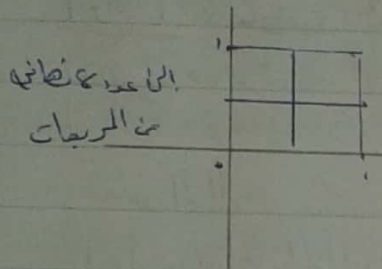 الى عدد لا نهائي
من المربعات
١
٠
١